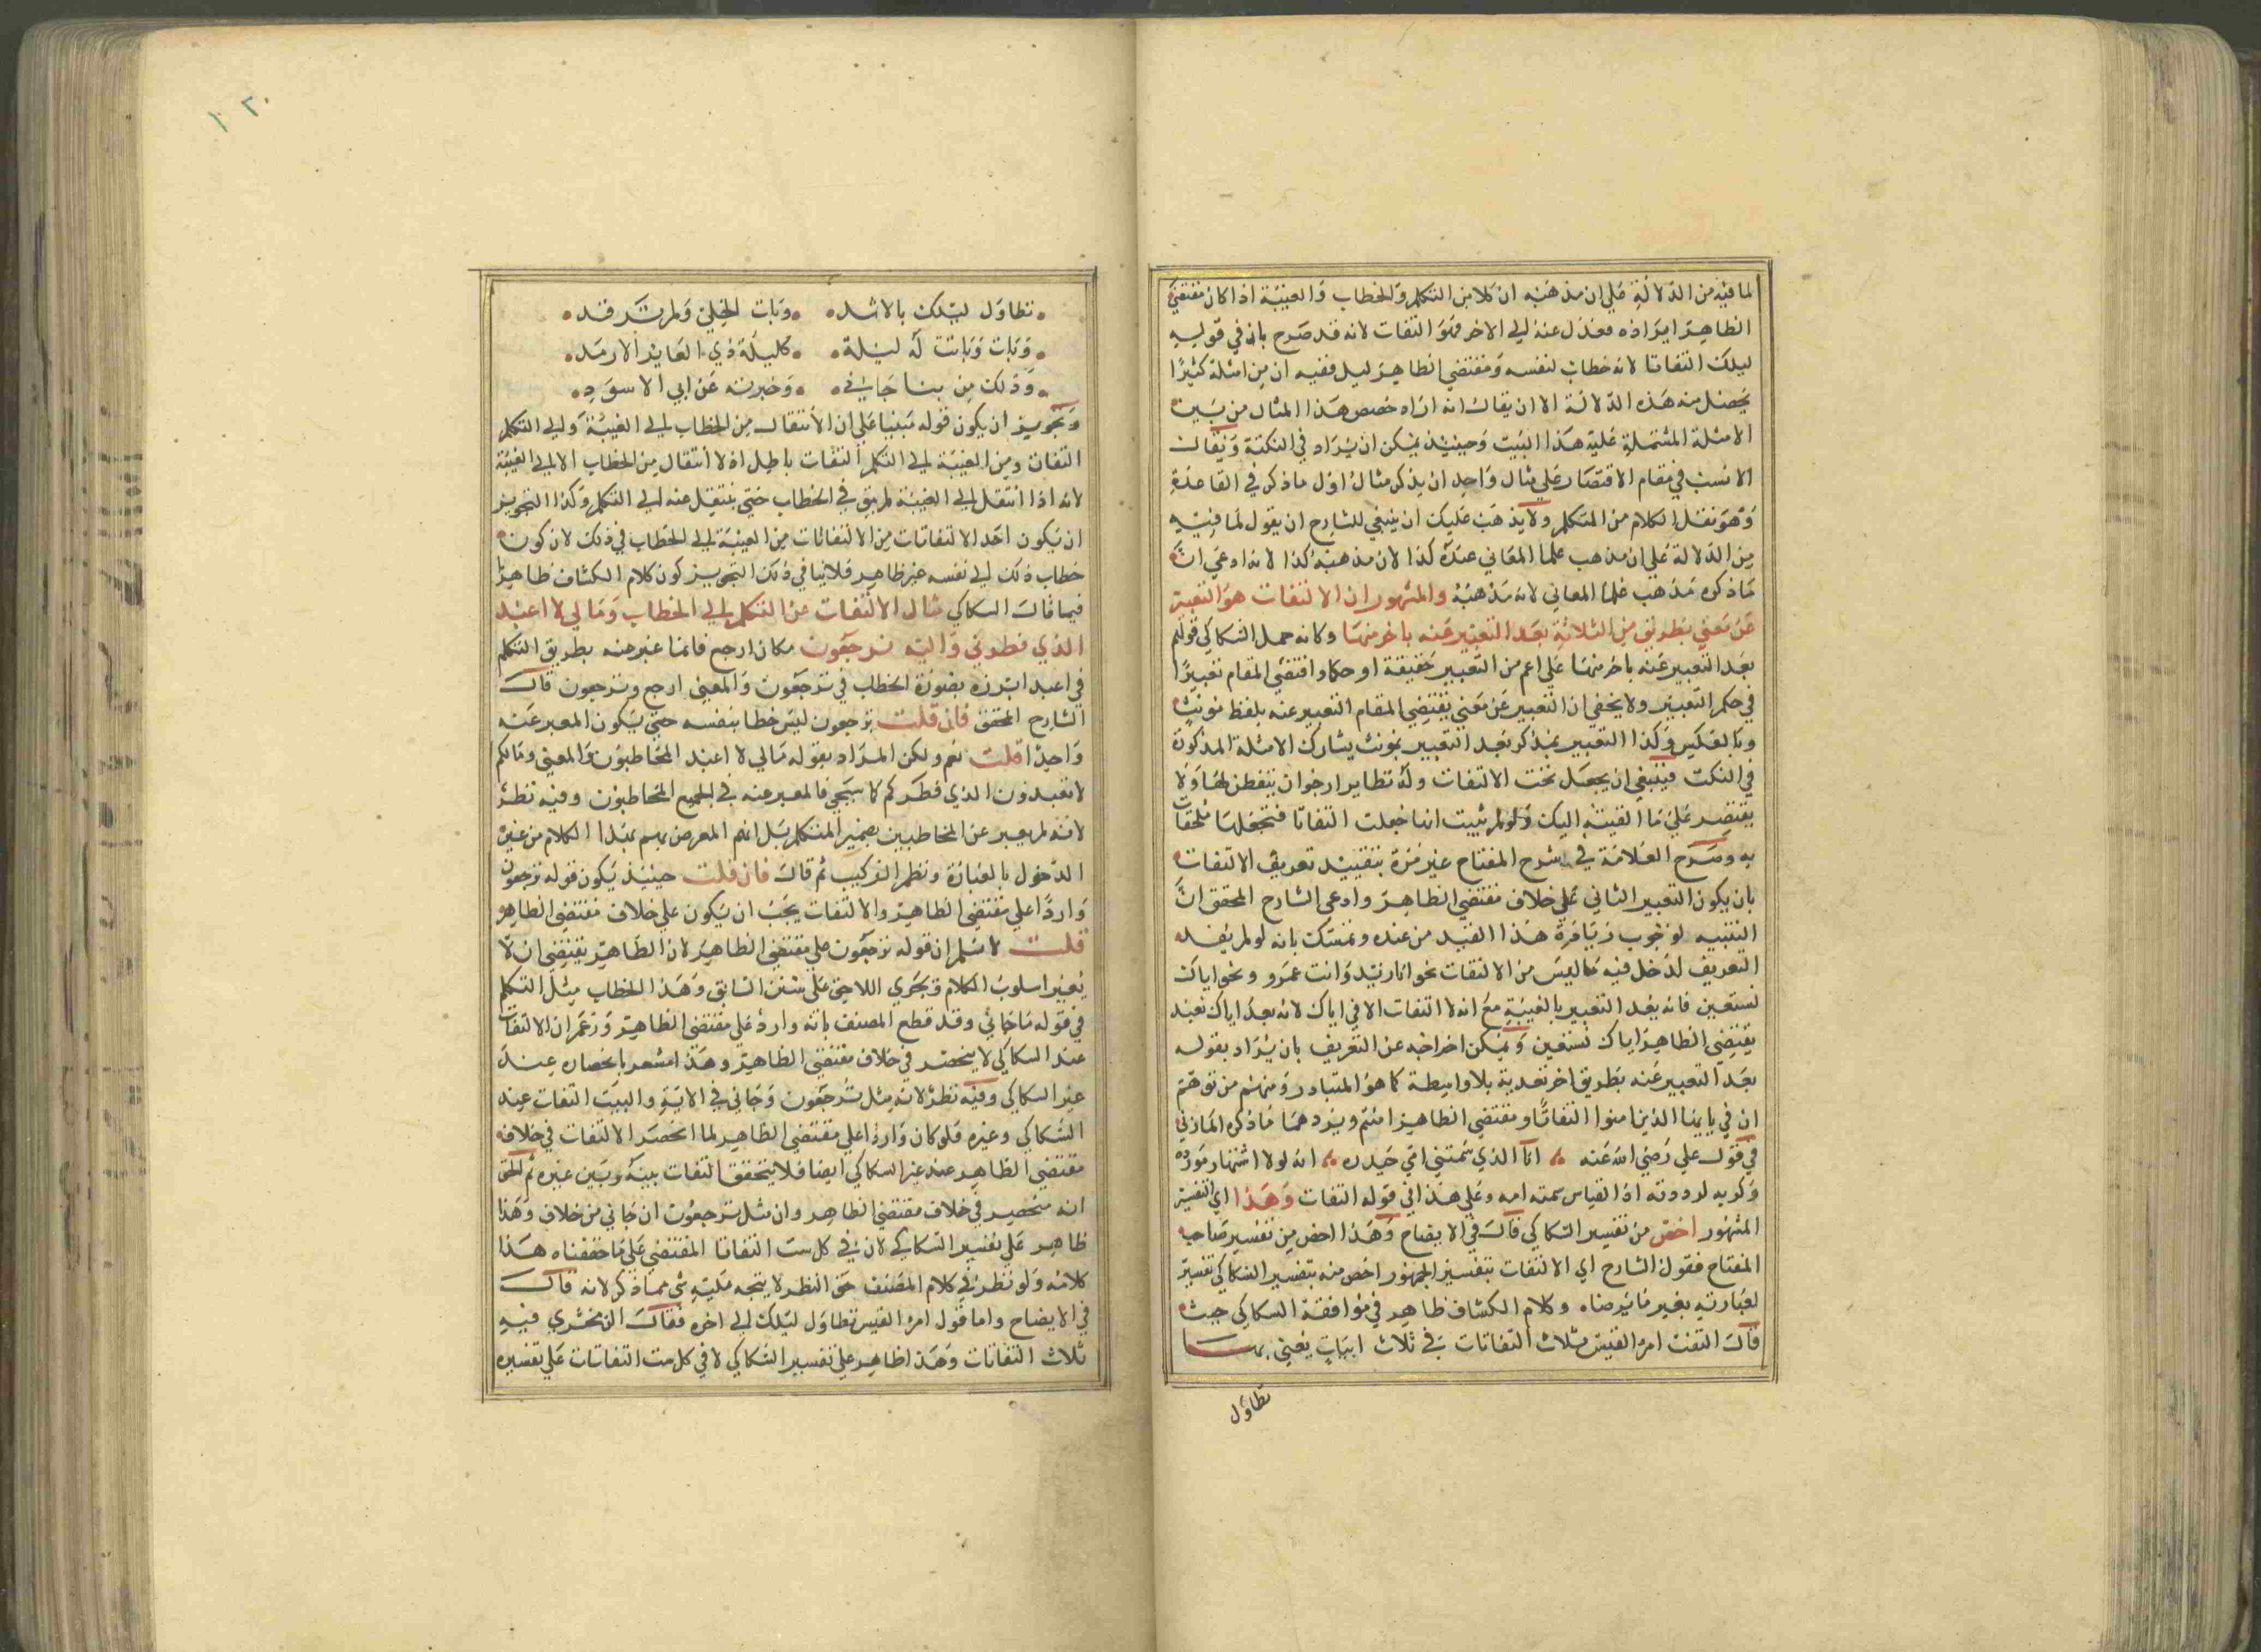 لما فيه من الدلالة على ان مذهبه ان كلا من التكلم والخطاب والغيبة اذا كان مقتضى
الظاهر ايراده فعدل عنه الى الاخر فهو التفات لانه قد صرح بان في قوله
ليلك التفاتا لانه خطاب لنفسه ومقتضى الظاهر ليلي ففيه ان من امثلة كثيرا
يحصل منه هذه الدلالة الا ان يقال انه اراد خصص هذا المثال من بين
الامثلة المشتملة عليه هذا البيت وحينئذ يمكن ان يزاد في النكتة ويقال
الانسب في مقام الاقتصار على مثال واحد ان يذكر مثال اول ما ذكر في القاعدة
وهو نقل الكلام من المتكلم ولا يذهب عليك ان ينبغي للشارح ان يقول لما فيه
من الدلالة على ان مذهب علما المعاني عنده كذا لان مذهبه كذا لانه ادعى ان
ما ذكره مذهب علما المعاني لانه مذهبه والمشهور ان الالتفات هو التعبير
عن معنى بطريق من الثلاثة بعد التعبير عنه باخر منها وكانه حمل السكاكي قولهم
بعد التعبير عنه باخر منها على اعم من التعبير حقيقة او حكما واقتضى المقام تعبيرا
في حكم التعبير ولا يخفى ان التعبير عن معنى يقتضي المقام التعبير عنه بلفظ مونث
وبالعكس وكذا التعبير بمذكر بعد التعبير بمونث يشارك الامثلة المذكورة
في النكت فينبغي ان يجعل تحت الالتفات وله نظاير ارجو ان يتفطن لها ولا
يقتصر على ما القيته اليك ولو لم يثبت انها جعلت التفاتا فتجعلها ملحقات
به وصرح العلامة في شرح المفتاح غير مرة بتقييد تعريف الالتفات
بان يكون التعبير الثاني على خلاف مقتضى الظاهر وادعى الشارح المحقق ان
التنبيه لوجوب زيادة هذا القيد من عنده وتمسك بانه لو لم يقله
التعريف لدخل فيه ما ليس من الالتفات نحو انا زيد وانت عمرو ونحو اياك
نستعين فانه بعد التعبير بالغيبة مع انه لا التفات الا في اياك لانه بعد اياك نعبد
يقتضي الظاهر اياك نستعين ويمكن اخراجه عن التعريف بان يراد بقوله
بعد التعبير عنه بطريق اخر بعدية بلا واسطة كما هو المتبادر ومنهم من توهم
ان في يا يها الذين امنوا التفاتا ومقتضى الظاهر امنتم ويردهما ما ذكره المازني
في قول علي رضي الله عنه انا الذي سمتني امي حيدره انه لولا اشتهار مورده
وكربه لرددته اذ القياس سمته امه وعلى هذا في قوله التفات وهذا اي التفسير
المشهور اخص من تفسير السكاكي قال في الايضاح وهذا اخص من تفسير صاحب
المفتاح فقول الشارح اي الالتفات بتفسير الجمهور اخص منه بتفسير السكاكي تفسير
لعبارته بغير ما يرضاه وكلام الكشاف ظاهر في موافقة السكاكي حيث
قال التفت امرؤ القيس ثلاث التفاتات في ثلاث ابيات يعني بها
تطاول
تطاول ليلك بالاثمد وبات الخلي ولم ترقد
وبات وباتت له ليلة كليلة ذي العاير الارمد
وذلك من نبا جاني وخبرته عن ابي الاسود
وتجويز ان يكون قوله مبنيا على ان الانتقال من الخطاب الى الغيبة والى التكلم
التفات ومن الغيبة الى التكلم التفات باطل اذ لا انتقال من الخطاب الا الى الغيبة
لانه اذا انتقل الى الغيبة لم يبق في الخطاب حتى ينتقل عنه الى التكلم وكذا التجويز
ان يكون احد الالتفاتات من الالتفاتات من الغيبة الى الخطاب في ذلك لان كون
خطاب ذلك الى نفسه غير ظاهر فلا ينافي ذلك التجويز كون كلام الكشاف ظاهرا
فيما قال السكاكي مثال الالتفات عن التكلم الى الخطاب وما لي لا اعبد
الذي فطرني واليه ترجعون مكان ارجع فانما عبر عنه بطريق التكلم
في اعبد ابرزه بصورة الخطاب في ترجعون والمعنى ارجع وترجعون قال
الشارح المحقق فان قلت ترجعون ليس خطابا بنفسه حتى يكون المعبر عنه
واحدا قلت نعم ولكن المراد بقوله مالي لا اعبد المخاطبون والمعنى وما لكم
لا تعبدون الذي فطركم كما سيجي فالمعبر عنه في الجميع المخاطبون وفيه نظر
لانه لم يعبر عن المخاطبين بضمير المتكلم بل انهم المعرض بهم بهذا الكلام من غير
الدخول بالعبارة ونظم التركيب ثم قال فان قلت حينئذ يكون قوله ترجعون
واردا على مقتضى الظاهر والالتفات يجب ان يكون على خلاف مقتضى الظاهر
قلت لا نسلم ان قوله ترجعون على مقتضى الظاهر لان الظاهر يقتضي ان لا
يغير اسلوب الكلام ويجري اللاحق على سنن السابق وهذا الخطاب مثل التكلم
في قوله ما جاني وقد قطع المصنف بانه وارد على مقتضى الظاهر وزعم ان الالتفات
عند السكاكي لا ينحصر في خلاف مقتضى الظاهر وهذا مشعر بانحصاره عند
غير السكاكي وفيه نظر لانه مثل ترجعون وجاني في الاية والبيت التفات عند
السكاكي وغيره فلو كان واردا على مقتضى الظاهر لما انحصر الالتفات في خلافه
مقتضى الظاهر عند غير السكاكي ايضا فلا يتحقق التفات بينه وبين غيره ثم الحق
انه منحصر في خلاف مقتضى الظاهر وان مثل ترجعون ان جاني من خلاف وهذا
ظاهر على تفسير السكاكي لان في كل بيت التفاتا المقتضى على ما حققناه هذا
كلامه ولو نظر في كلام المصنف حق النظر لا يتجه عليه شي مما ذكر لانه قال
في الايضاح واما قول امرؤ القيس تطاول ليلك الى اخره فقال الزمخشري فيه
ثلاث التفاتات وهذا ظاهر على تفسير السكاكي لا في كل بيت التفاتات على تفسيره